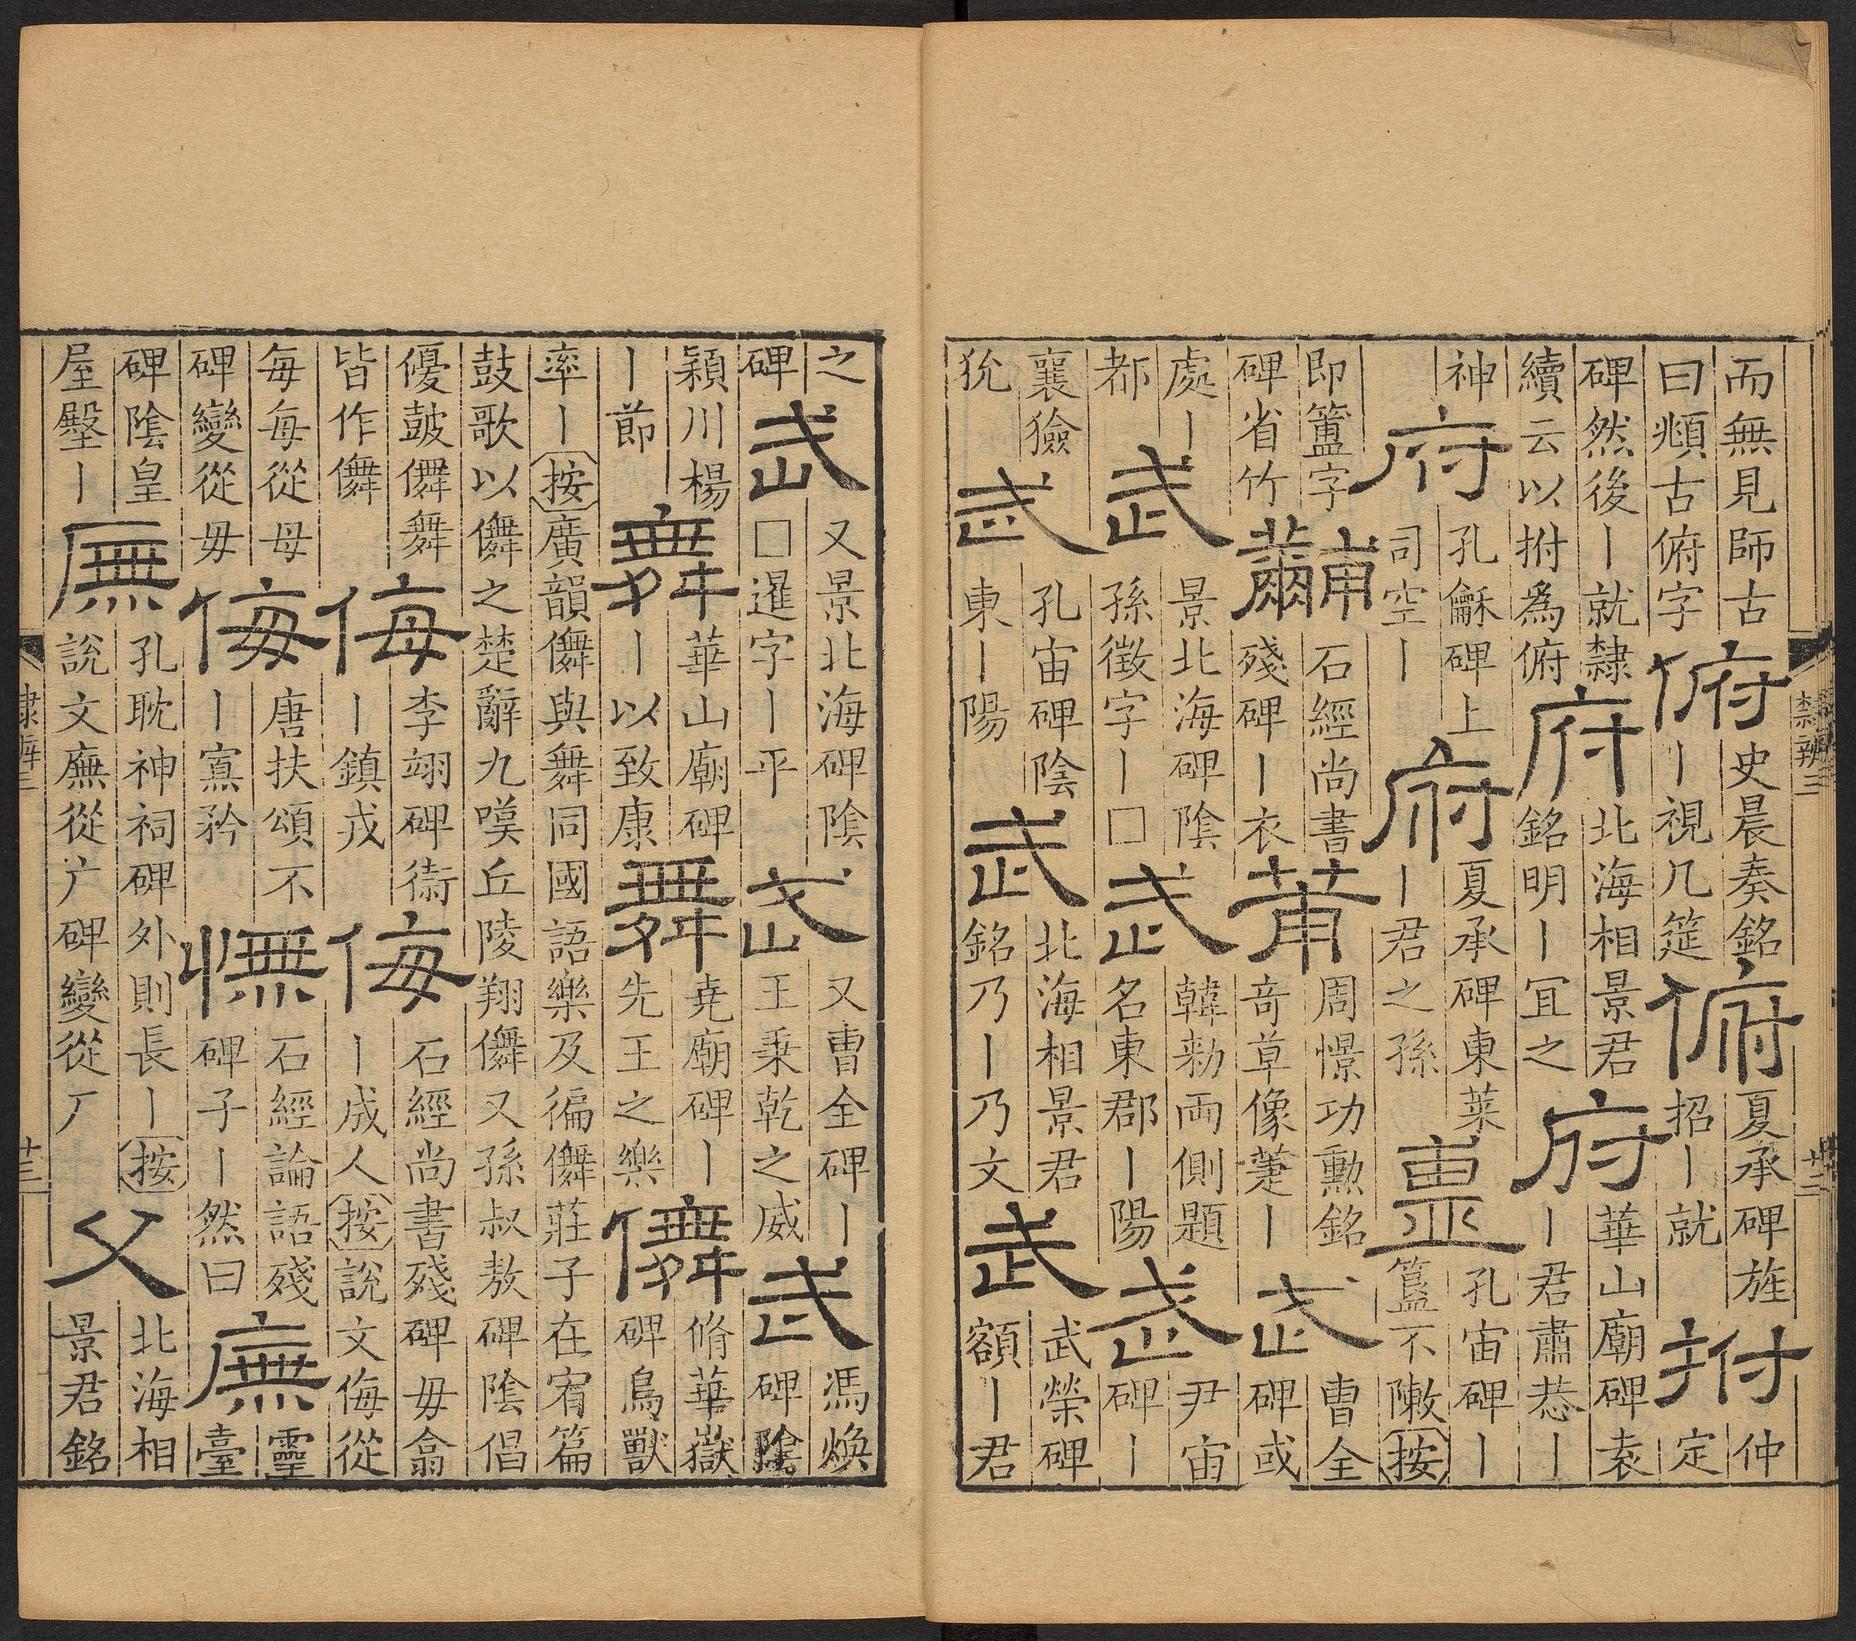 而無見師古
曰頫古俯字
俯
史晨奏銘
丨視几筵
俯
夏承碑旌
招丨就
拊
仲
定
碑然後丨就隸
續云以拊爲俯
府
北海相景君
銘明丨冝之
府
華山廟碑袁
丨君肅恭丨
神
府
孔龢碑上
司空丨
府
夏承碑東萊
丨君之孫
簠
孔宙碑丨
簋不敶按
即簠字
碑省竹
黼
石經尚書
殘碑丨衣
莆
周憬功勳銘
竒草像萐丨
武
曹全
碑或
處丨
都
武
景北海碑陰
孫徵字丨□
武
韓勑兩側題
名東郡丨陽
武
尹宙
碑丨
襄獫
狁
武
孔宙碑陰
東丨陽
武
北海相景君
銘乃丨乃文
武
武榮碑
額丨君
隸辨三
廿三
之
碑
武
又景北海碑陰
□暹字丨平
武
又曹全碑丨
王秉乾之威
武
馮煥
碑陰
穎川楊
丨節
舞
華山廟碑
丨以致康
舞
堯廟碑丨
先王之樂
儛
脩華嶽
碑鳥獸
率丨按廣韻儛與舞同國語樂及徧儛莊子在宥篇
鼓歌以儛之楚辭九嘆丘陵翔儛又孫叔敖碑陰倡
優鼓儛舞
皆作儛
侮
李翊碑衞
丨鎮戎
侮
石經尚書殘碑毋翕
丨成人按說文侮從
每每從母
碑變從毋
侮
唐扶頌不
丨寡矜
憮
石經論語殘
碑子丨然曰
廡
靈
臺
碑陰皇
屋丨
廡
孔耽神祠碑外則長丨按
說文廡從广碑變從厂
父
北海相
景君銘